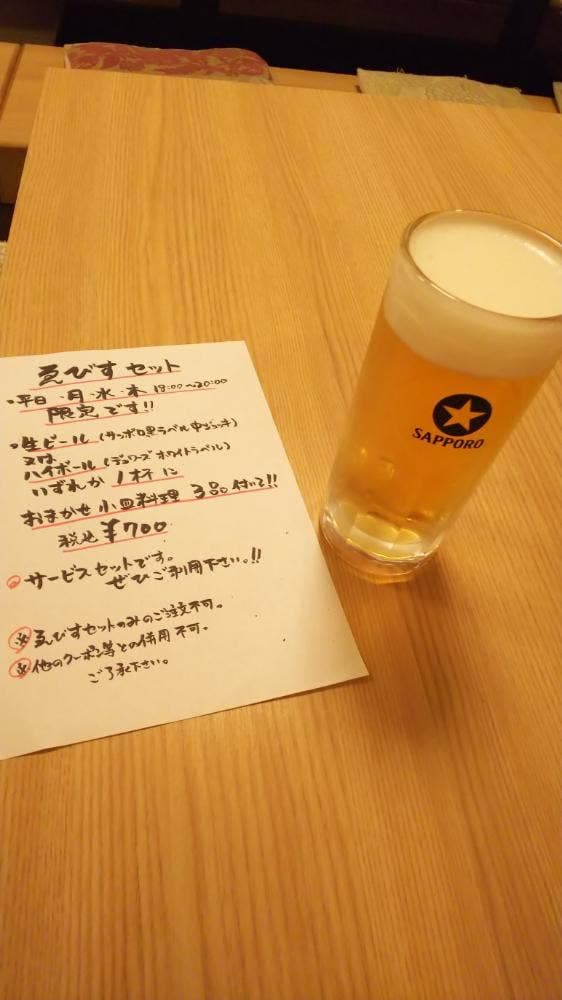 ゑびすセット
・平日・月・水・木 18:00〜20:00
限定です!!
・生ビール(サッポロ黒ラベル中ジョッキ)
又は
ハイボール(デュワーズホワイトラベル)
いずれか1杯に
おまかせ小皿料理3品付いて!!
税込¥700
○サービスセットです。
ぜひご利用下さい。!!
※ゑびすセットのみのご注文不可。
※他のクーポン等との併用不可。
ご了承下さい。
SAPPORO